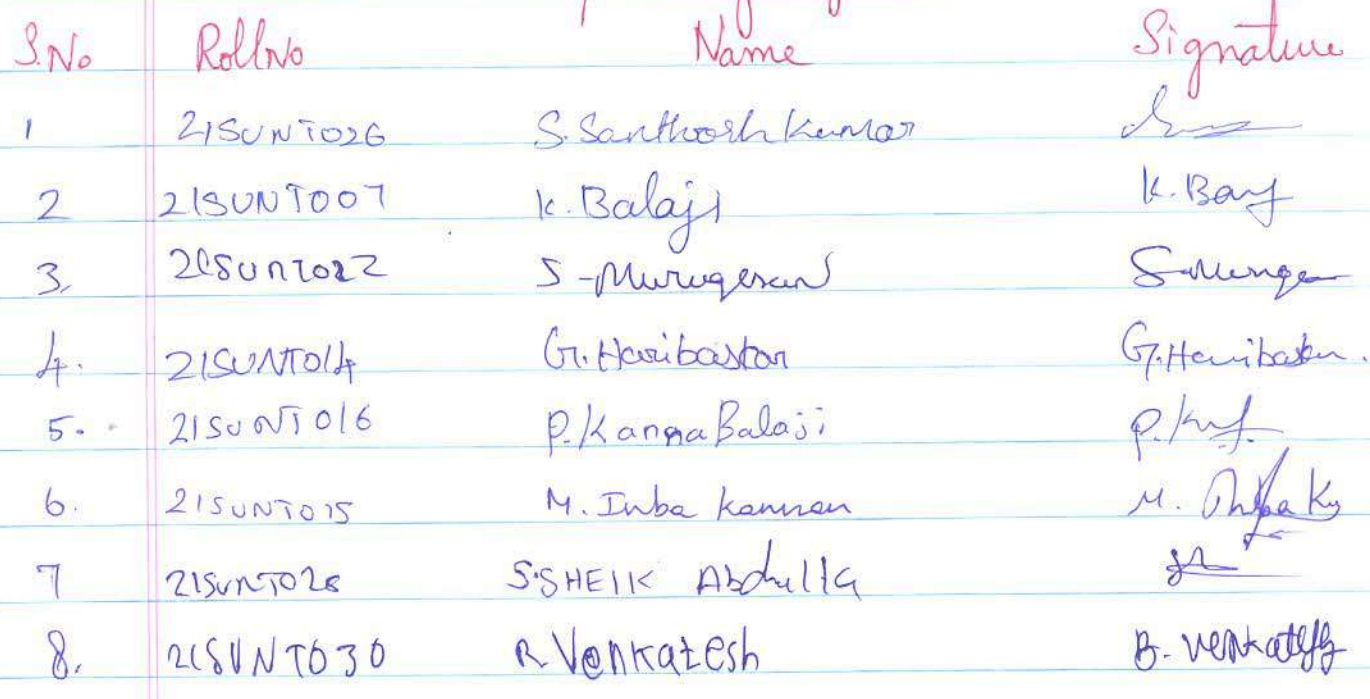 S.No Roll No Name Signature
1 21SUNT026 S. Santhosh Kumar
2 21SUNT007 K. Balaji K. Bay
3. 21SUNT022 S-Murugesan S-Muruge
4. 21SUNT014 G. Haribaskar G. Haribaskar.
5. 21SUNT016 P. Kanna Balaji
6. 21SUNT015 M. Inba kannan M. Inba
7 21SUNT028 S.SHEIK Abdulla
8. 21SUNT030 R Venkatesh